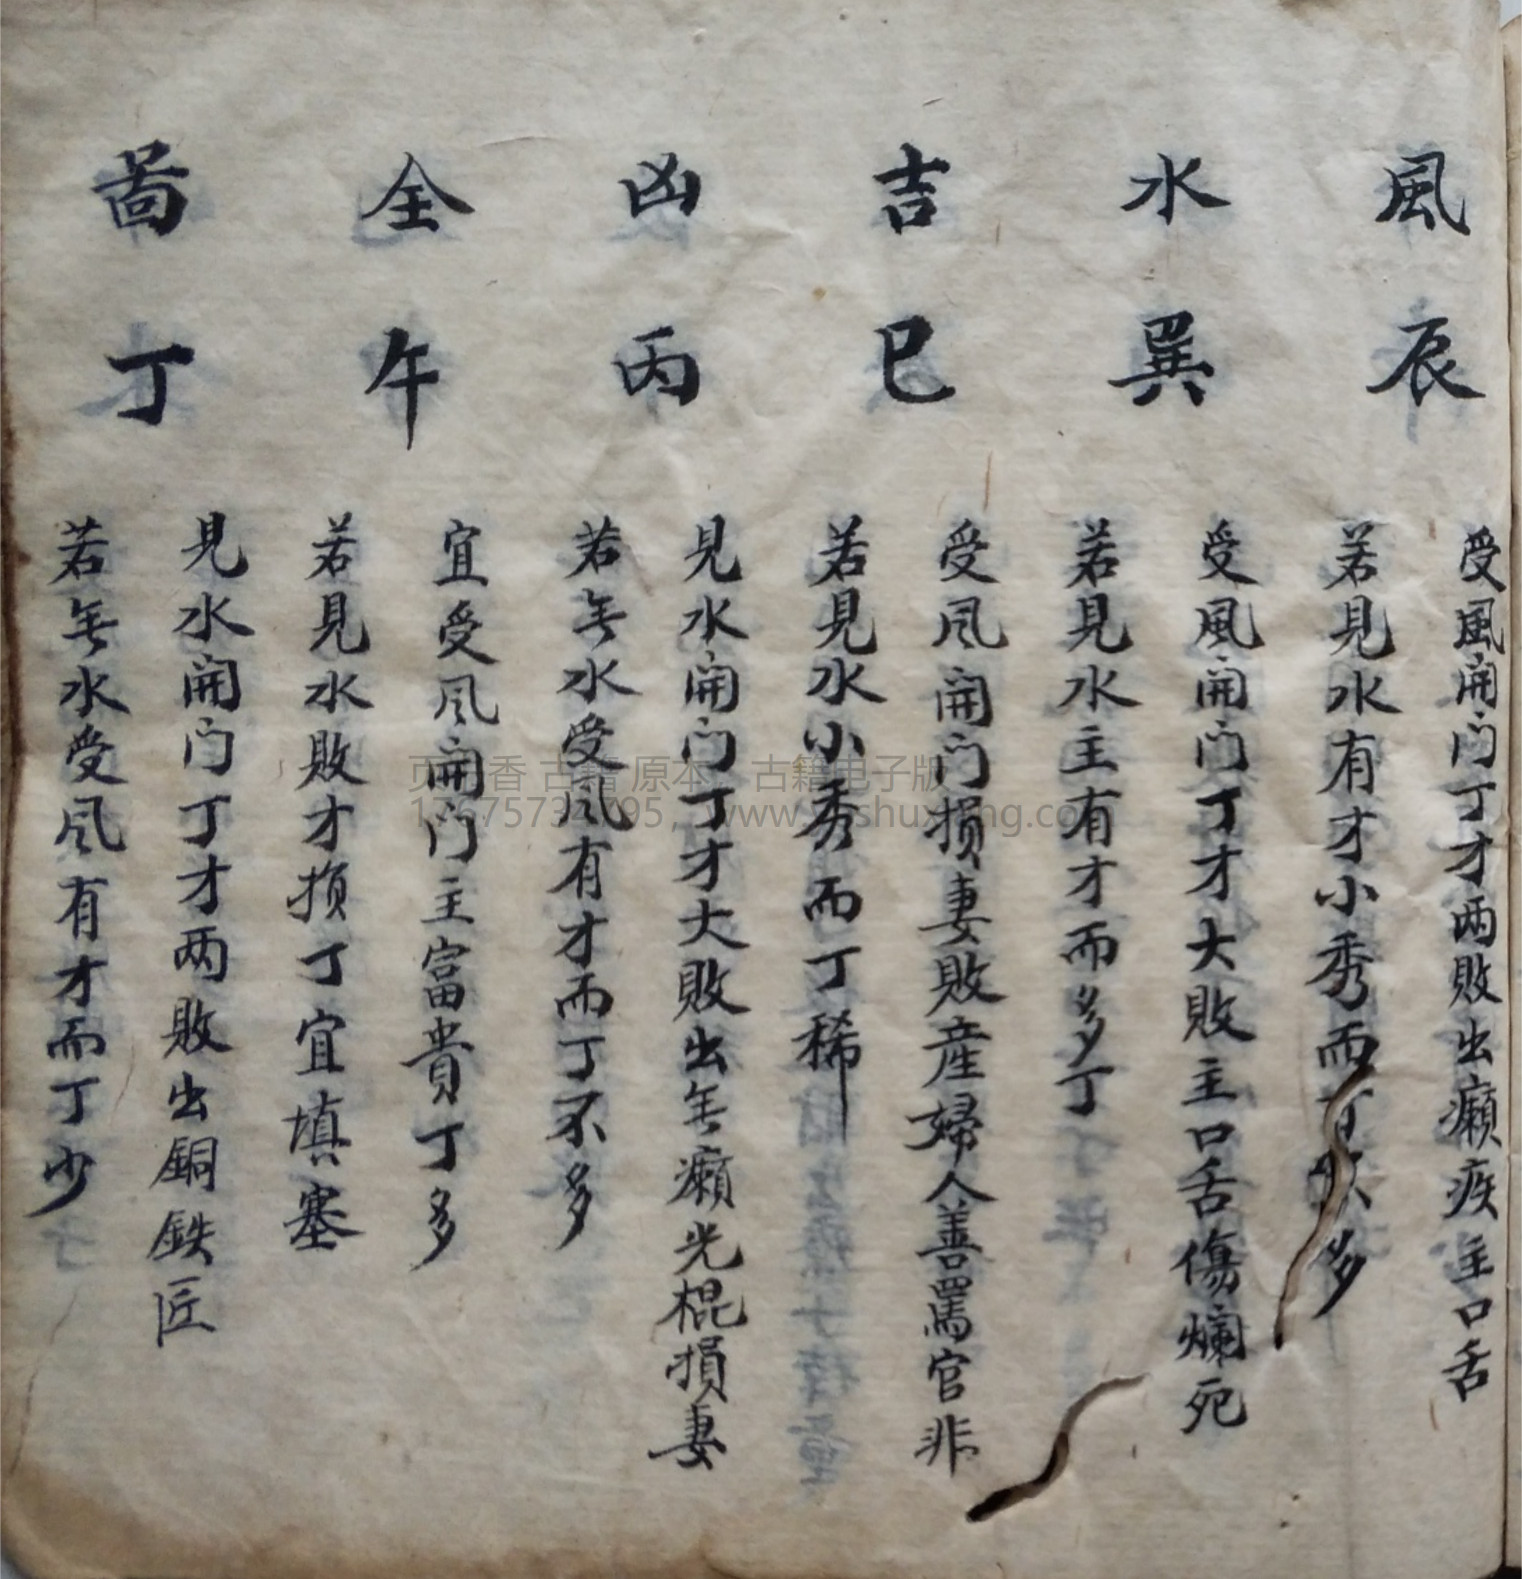 風
水
吉
凶
全
啚
辰
巽
巳
丙
午
丁
受風開门丁才两敗出癩疾主口舌
若見水有才小秀而多
受風開门丁才大敗主口舌傷爛死
若見水主有才而多丁
受凨開门損妻敗産婦人善罵官非
若見水小秀而丁稀
見水開门丁才大敗出无癩光棍損妻
若无水受凨有才而丁不多
宜受凨開门主富貴丁多
若見水敗才损丁宜填塞
見水開门丁才两敗出銅鉄匠
若无水受凨有才而丁少
古籍原本 古籍电子版